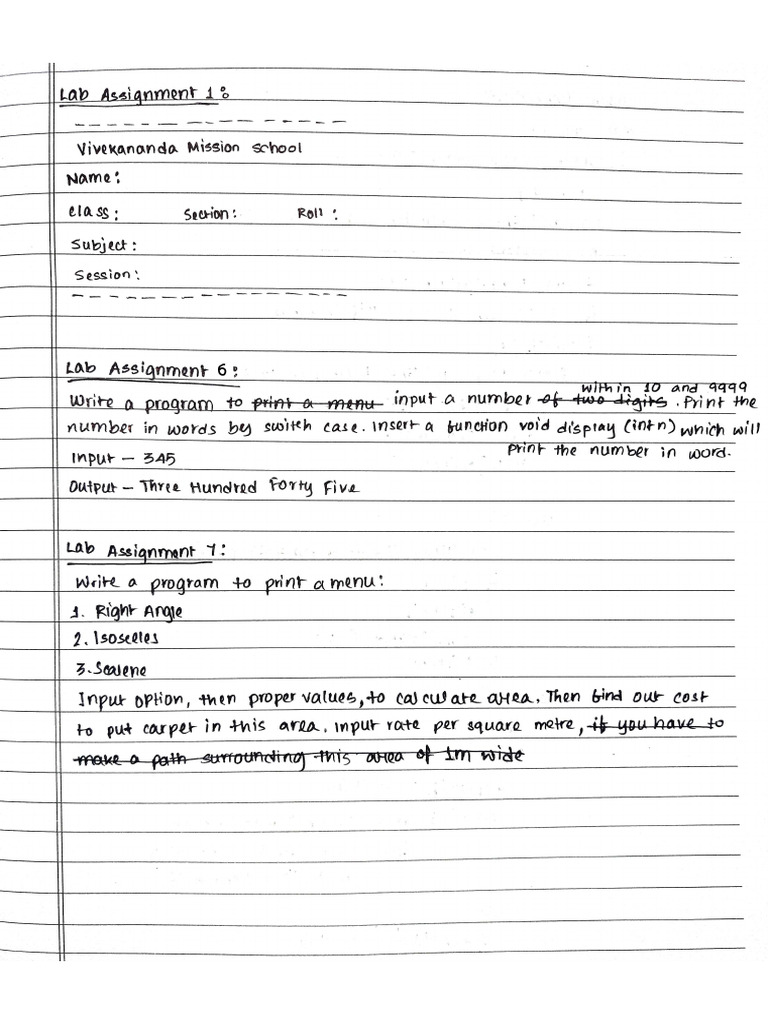 Lab Assignment 1:
- - - - - - - - - - - - - - - -
Vivekananda Mission School
Name:
Class: Section: Roll:
Subject:
Session:
- - - - - - - - - - - - - - - -
Lab Assignment 6:
within 10 and 9999
Write a program to print a menu input a number of two digits. Print the
number in words by switch case. Insert a function void display (int n) which will
print the number in word.
Input - 345
Output - Three Hundred Forty Five
Lab Assignment 7:
Write a program to print a menu:
1. Right Angle
2. Isosceles
3. Scalene
Input option, then proper values, to calculate area. Then find out cost
to put carpet in this area. Input rate per square metre, if you have to
make a path surrounding this area of 1m wide